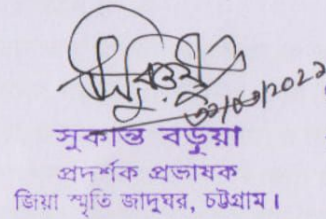 সুকান্ত বড়ুয়া
প্রদর্শক প্রভাষক
জিয়া স্মৃতি জাদুঘর, চট্টগ্রাম।